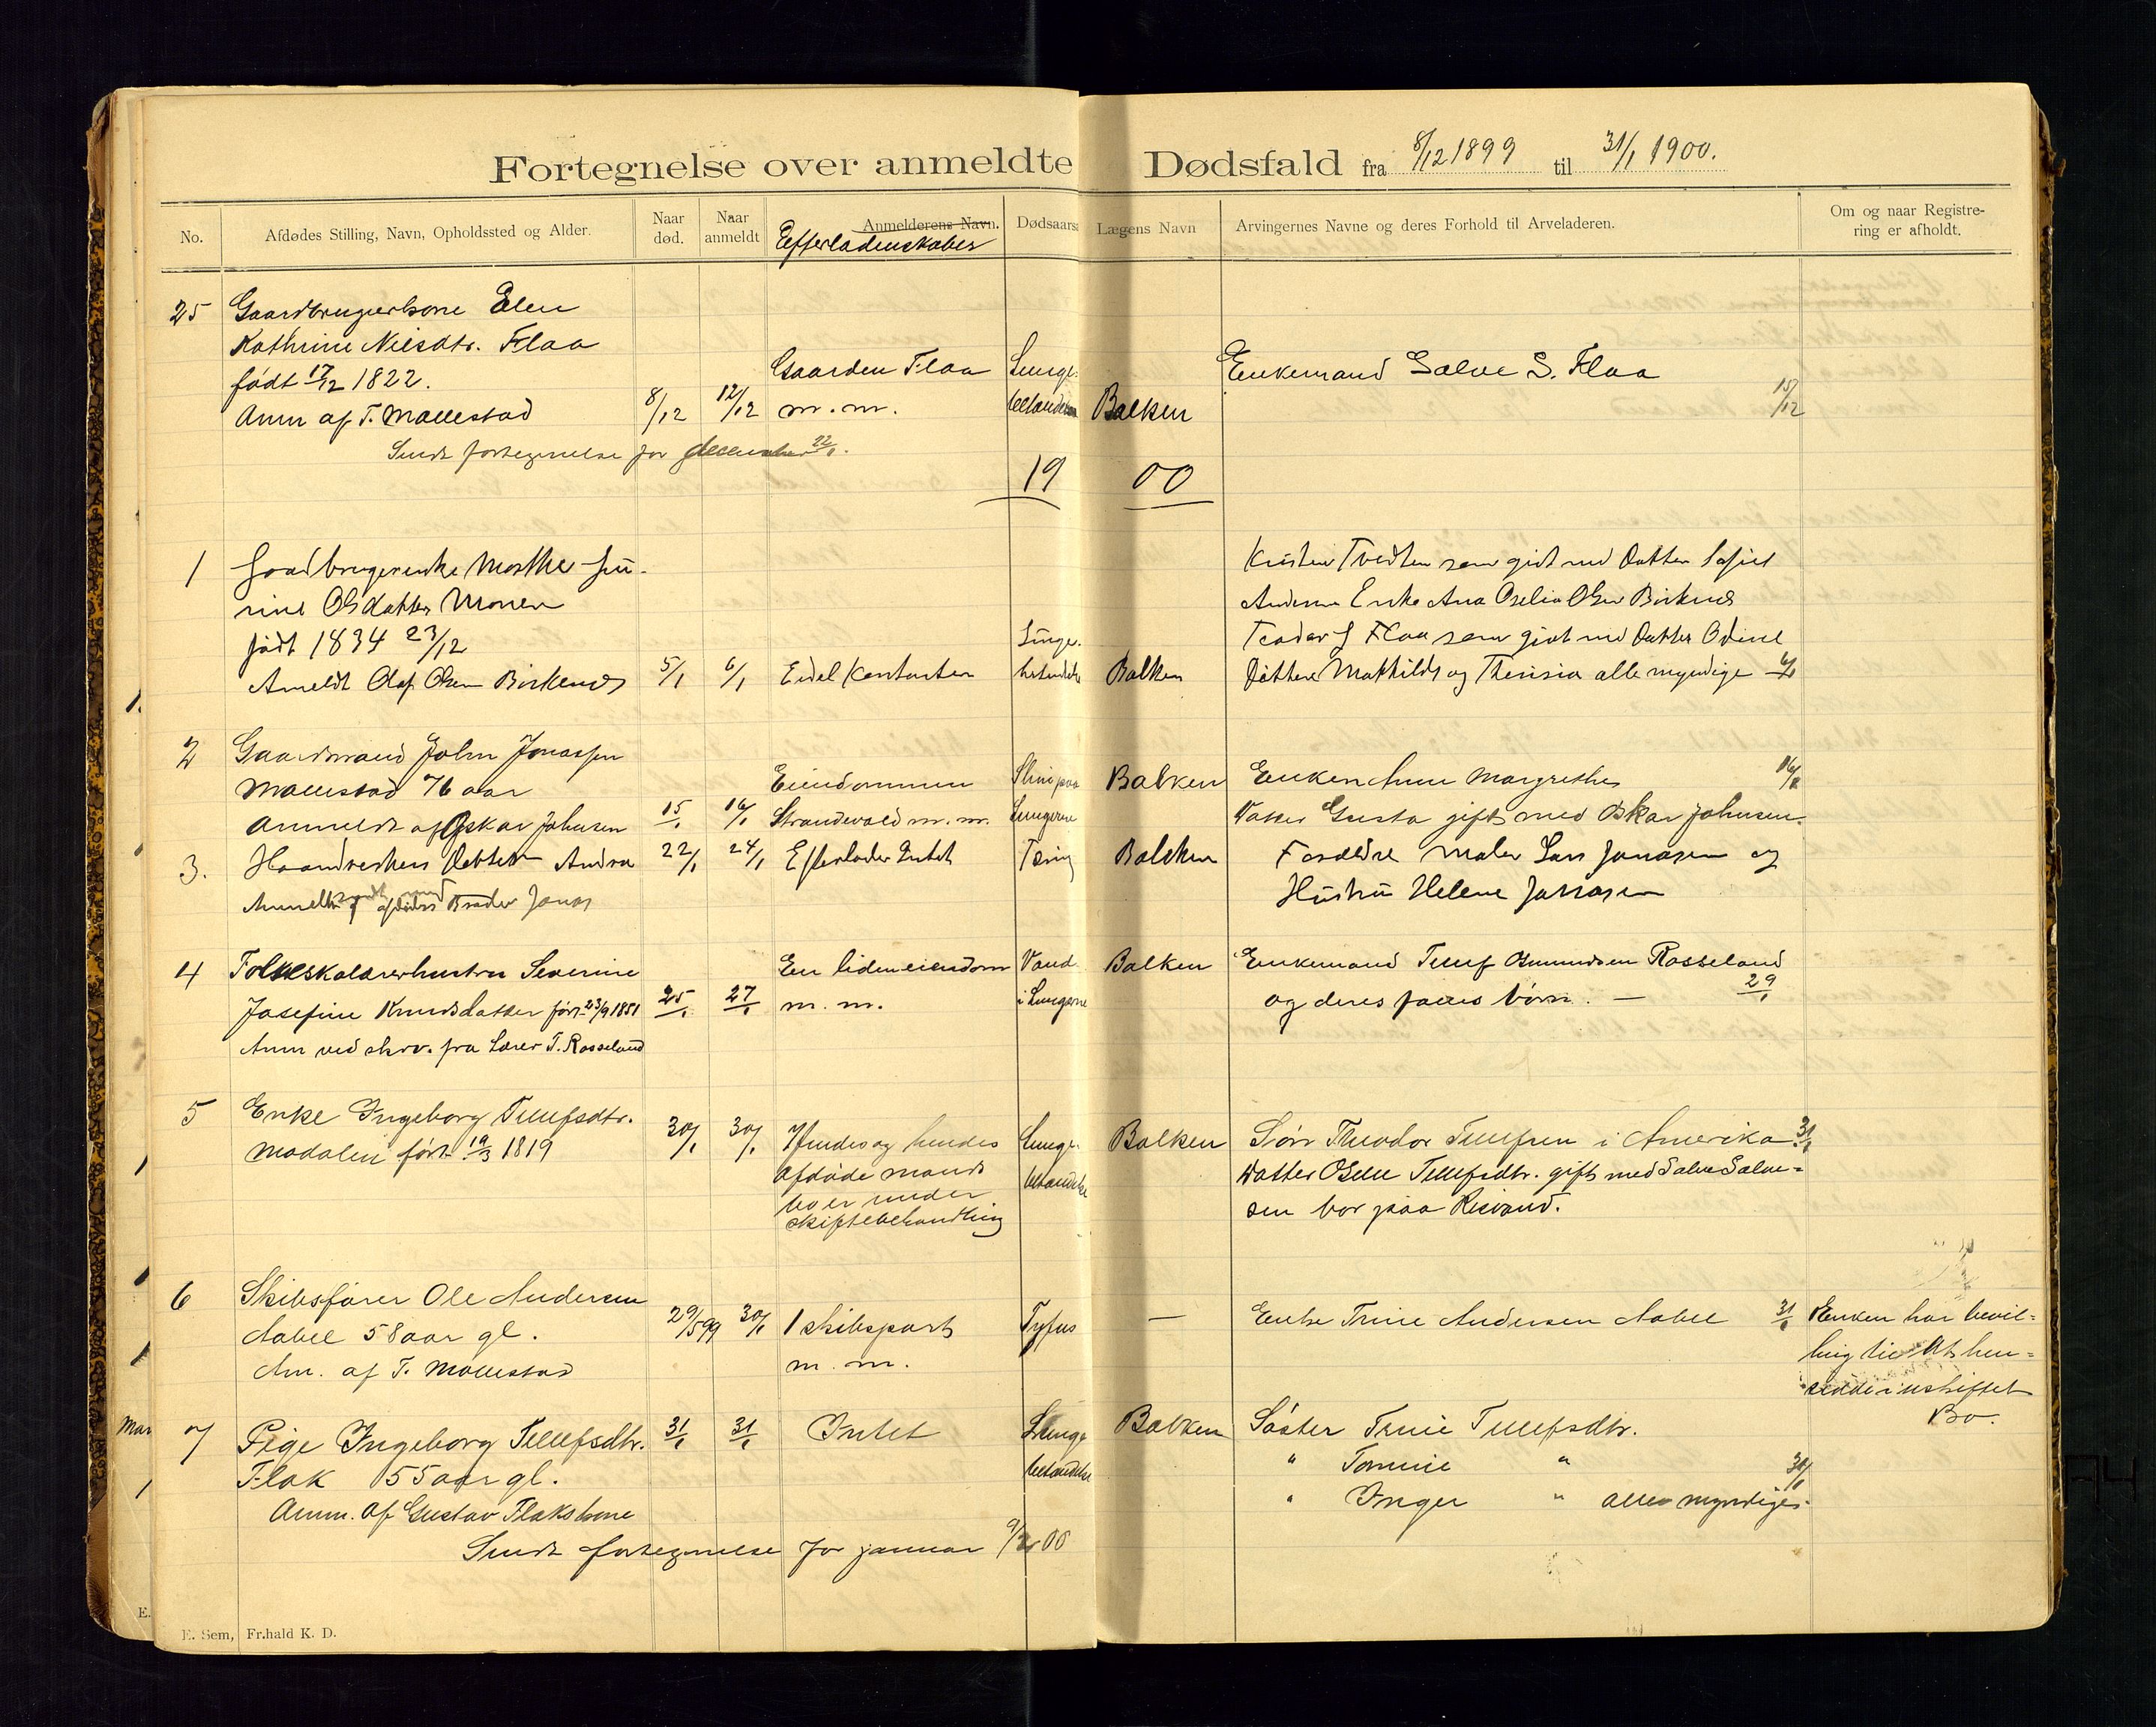 Fortegnelse over anmeldte Dødsfald fra 8/12 1899 til 31/1 1900.
No.
Afdødes Stilling, Navn, Opholdssted og Alder.
Naar død.
Naar anmeldt
Anmelderens Navn.
Efterladenskaber
Dødsaars
Lægens Navn
Arvingernes Navne og deres Forhold til Arveladeren.
Om og naar Registre-
ring er afholdt.
25 Gaardbrugerkone Elen
Kathrine Nielsdtr. Flaa
født 17/12 1822.
Anm af T. Mollestad 8/12 12/12
Gaarden Flaa
m. m.
Lunge-
betændelse
Balken
Enkemand Salve S. Flaa 15/12
Sendt fortegnelse for december 22/1.
19 00
1 Gaardbrugerenke Marthe Gu-
rine Olsdatter Moner
født 1834 23/12
Anmeldt Olof Olsen Birkenes 5/1 6/1 Eidel Kontanter
Lunge-
betændelse
Balken
Kristen Tvedten som givt med Datter Sofie
Andersen Enke Ana Oselia Olsen Birkenes
Teodor S Flaa som givt med Datter Odine
Døttere Mathilde og Therisia alle myndige 6/1
2 Gaardmand John Jonassen
Mollestad 76 aar
Anmeldt af Oskar Johnsen 15/1 16/1
Eiendommen
Strandevold m. m.
Sliim paa
Lungerne
Balken
Enken Anne Margrethe 16/1
Datter Gusta gift med Oskar Johnsen.
3. Haandverkers Datter Andrea 22/1 24/1 Efterlader Intet Tæring Balken
Anmeldt af afdødes Broder Jonas
Forældre Maler Lars Jonasen og
Hustru Helene Jonasen
4 Folkeskolelærerhustru Severine
Josefine Knudsdatter født 23/9 1851 25/1 27/1
Anm ved skrv. fra Lærer T. Rosseland
En liden eiendom
m. m.
Vand
i Lungerne
Balken
Enkemand Tellef Osmundsen Rosseland
og deres fælles børn. — 29/1
5 Enke Ingeborg Tellefsdtr.
Modalen født 19/3 1819 30/1 30/1
Hendes og hendes
afdøde mands
bo er under
skiftebehandling
Lunge
betændelse
Balken
Søn Theodor Tellefsen i Amerika. 31/1
Datter Osille Tellefsdtr. gift med Salve Salve=
sen bor paa Risvand.
6 Skibsfører Ole Andersen
Aabel 58 aar gl. 29/5 99 30/1
Am. af T. Mollestad
1 skibspart
m. m.
Tyfus
—
Enke Trine Andersen Aabel 31/1
Enken har bevil=
ling til at hen=
sidde i uskiftet
Bo.
7 Pige Ingeborg Tellefsdtr. 31/1 31/1 Intet
Flak 55 aar gl.
Anm. af Gustav Flakskone
Lunge
betændelse
Balken
Søster Trine Tellefsdtr.
" Tomine "
" Inger " alle myndige. 31/1
Sendt fortegnelse for januar 9/2 00
E. Sem, Fr.hald K. D.